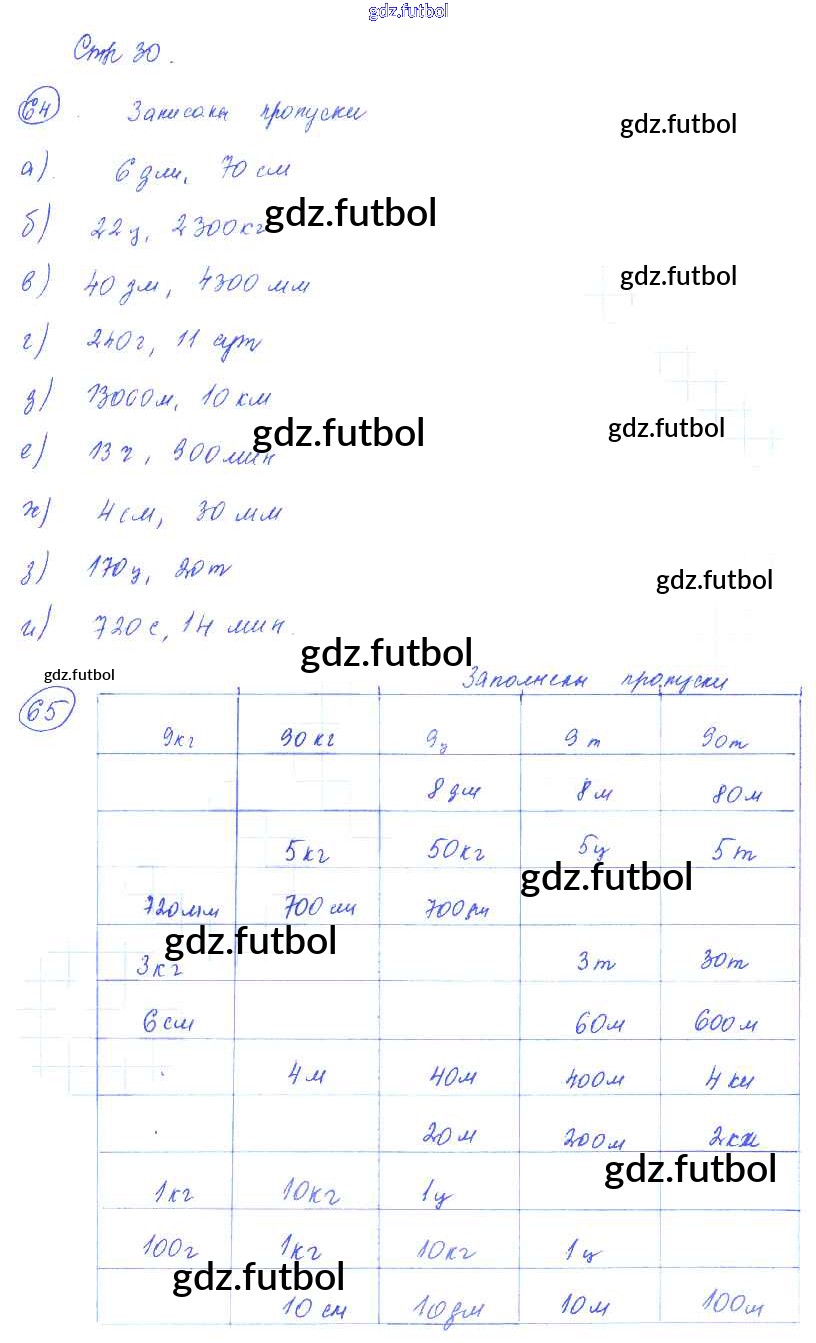 gdz.futbol
Стр 30.
64. Записаны пропуски
gdz.futbol
а). 6 дм, 70 см
б) 22ц, 2300кг
gdz.futbol
в) 40 дм, 4300 мм
gdz.futbol
г) 240г, 11 сут
д) 13000м, 10 км
gdz.futbol gdz.futbol
е) 13 г, 900мин
ж) 4см, 30 мм
з) 170ц, 20т
gdz.futbol
и) 720с, 14 мин.
gdz.futbol
gdz.futbol
65 Заполнены пропуски
9кг 90 кг 9ц 9 т 90т
8 дм 8м 80м
5кг 50кг 5ц 5 т
gdz.futbol
720мм 700 см 700дм
gdz.futbol
3кг 3т 30т
6см 60м 600м
4 м 40м 400м 4 км
20м 200м 2км
gdz.futbol
1кг 10кг 1ц
100г 1кг 10кг 1ц
gdz.futbol
10 см 10дм 10м 100м